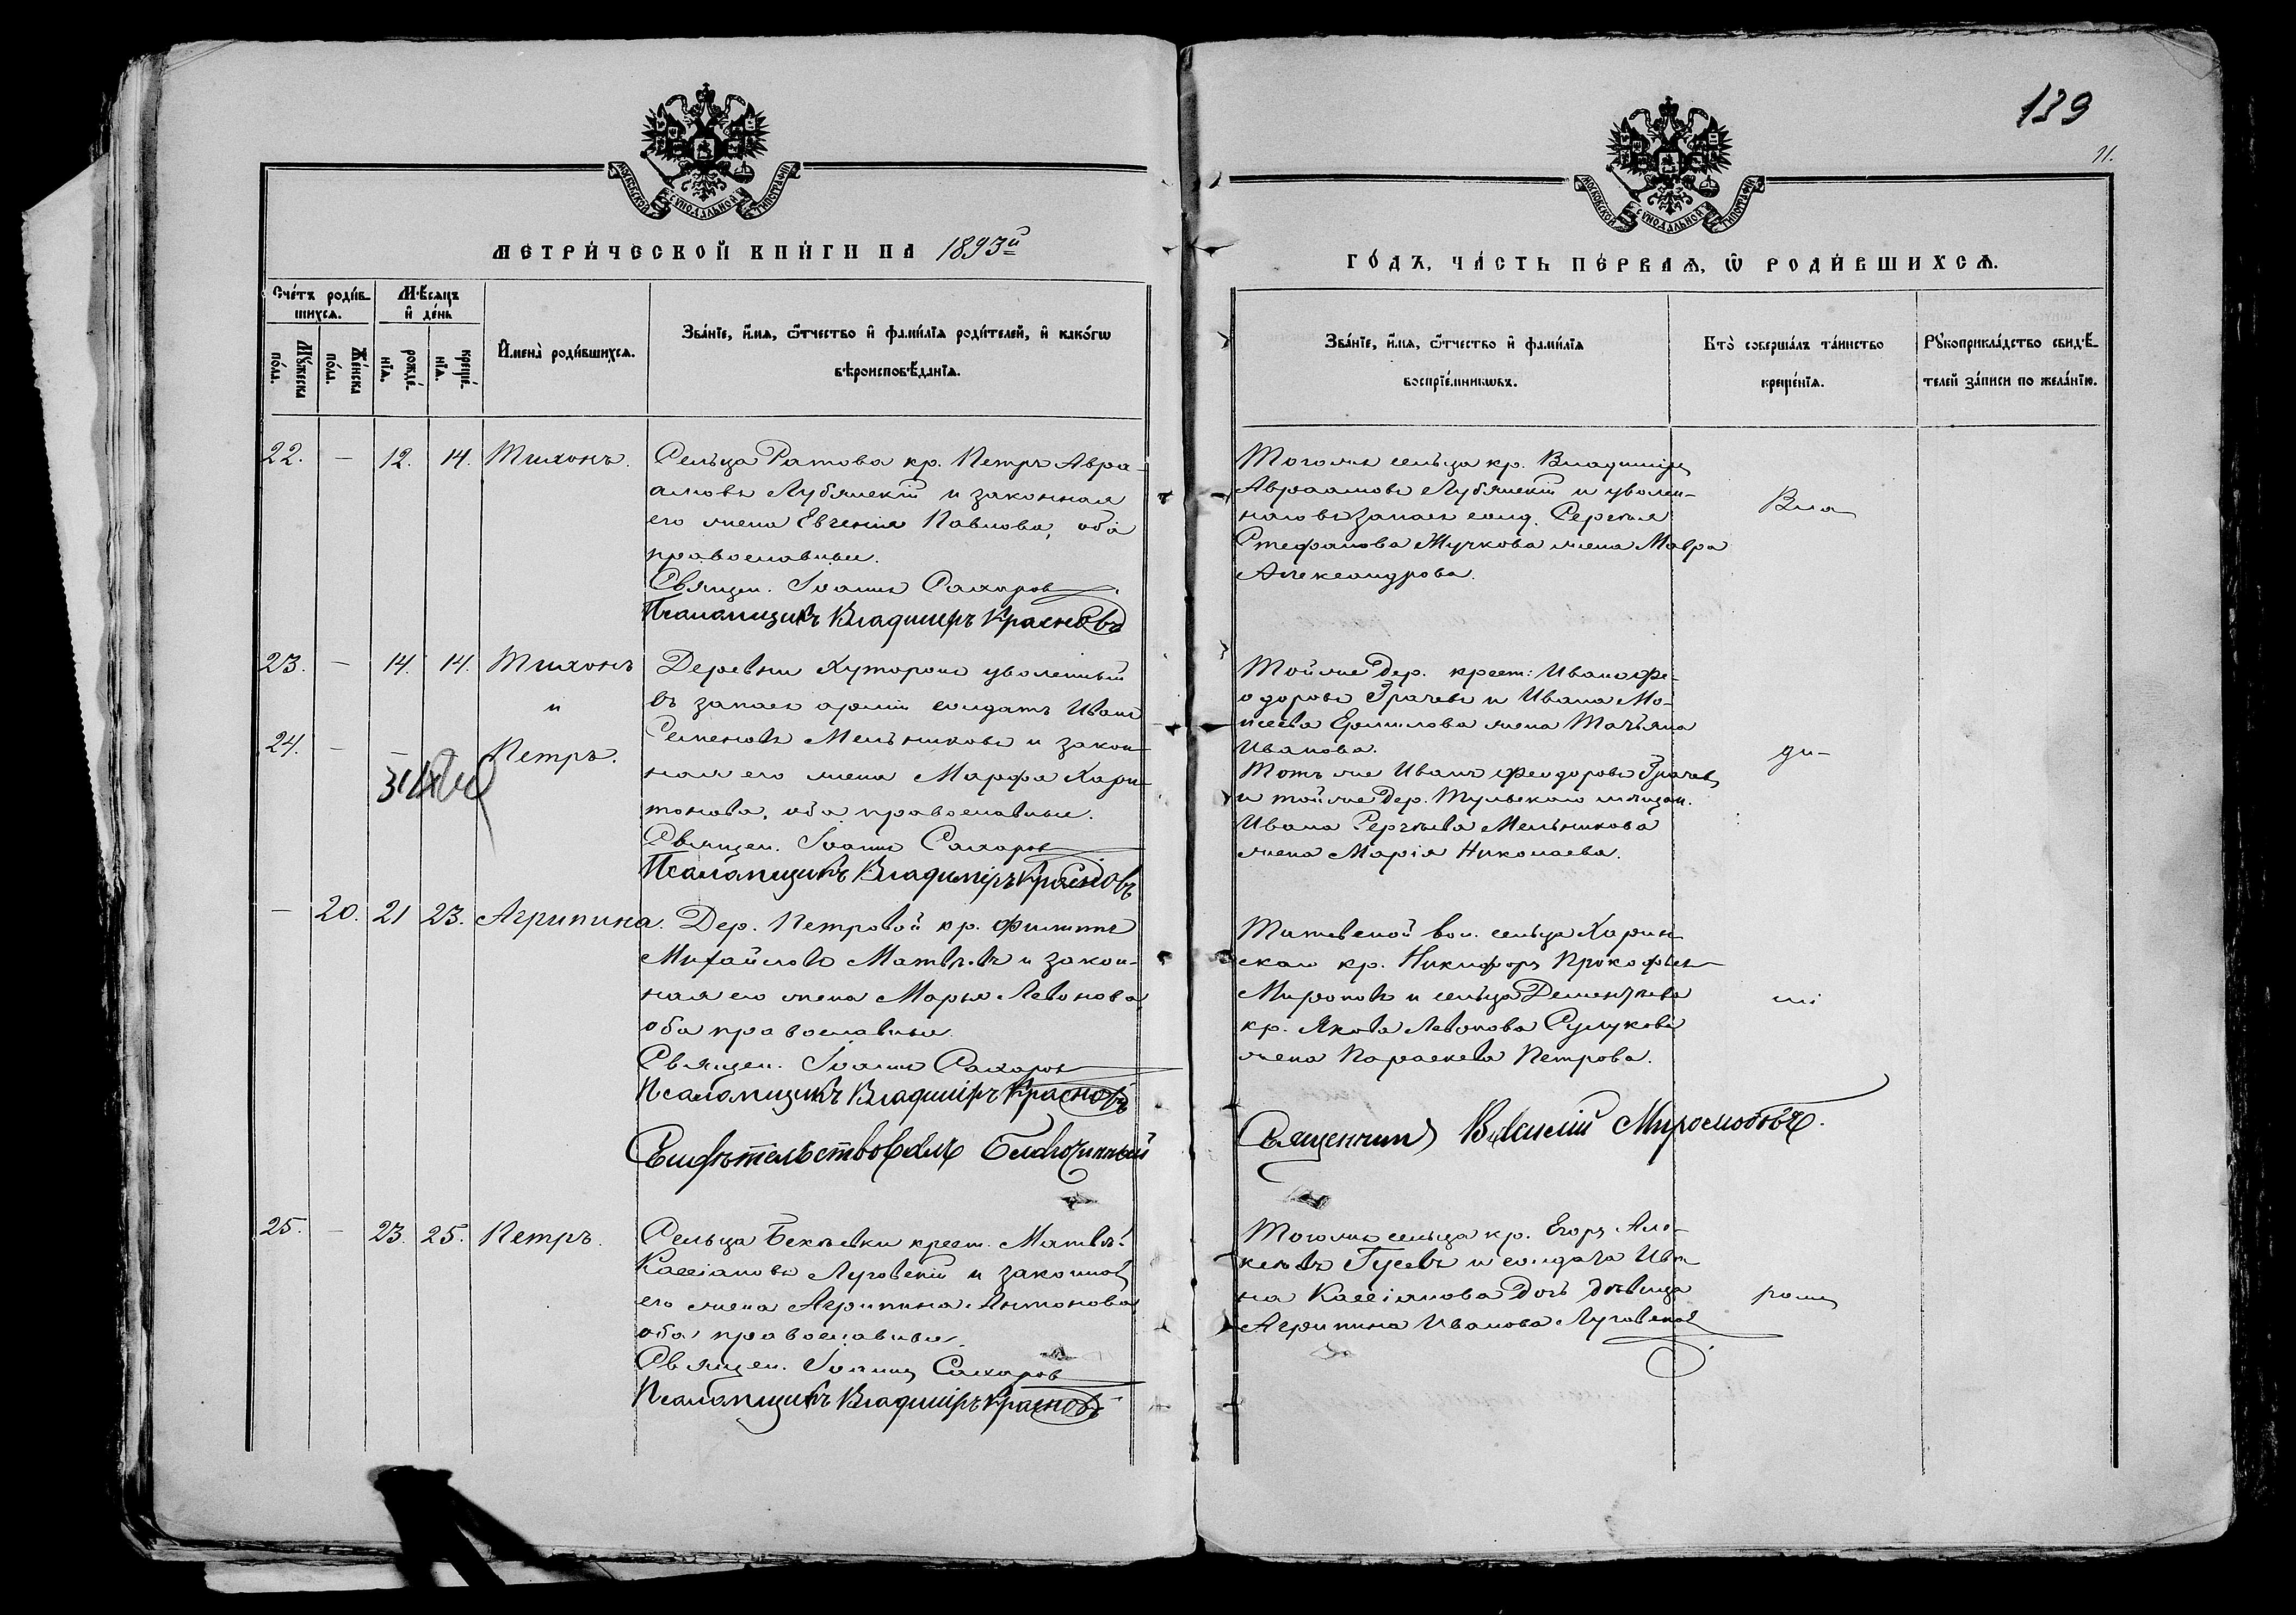 139
11.
МОСКОВСКОЙ СѴНОДАЛЬНОЙ ТИПОГРАФІИ
МОСКОВСКОЙ СѴНОДАЛЬНОЙ ТИПОГРАФІИ
МЕТРИ́ЧЕСКОЙ КНИ́ГИ НА 1893й
ГО́ДЪ, ЧА́СТЬ ПЕ́РВАЯ, Ѡ РОДИ́ВШИХСЯ.
Сче́тъ роди́вшихся.
Мѣ́сяцъ и҆ де́нь
Му́жеска по́ла.
Же́нска по́ла.
рожде́нїя.
креще́нїя.
И҆мена̀ роди́вшихся.
Зва́нїе, и҆́мя, ѻ҆́тчество и҆ фами́лїя роди́телей, и҆ како́гѡ
вѣроисповѣ́данїя.
Зва́нїе, и҆́мя, ѻ҆́тчество и҆ фами́лїя
воспрїе́мникѡвъ.
Кто̀ соверша́лъ та́инство
креще́нїя.
Рꙋкоприкла́дство свидѣ́телей за́писи по жела́нїю.
22. — 12. 14. Тихонъ.
Сельца Ратова кр. Петръ Авра-
амовъ Лубянскій и законная
его жена Евгенія Павлова, оба
православные.
Священ. Іоаннъ Сахаровъ
Псаломщикъ Владимиръ Красновъ
Тогоже сельца кр. Владиміръ
Авраамовъ Лубянскій и уволен-
наго въ запасъ солд. Сергѣя
Стефанова Жучкова жена Мавра
Александрова.
Вла
23. — 14. 14. Тихонъ
и
24. — — Петръ.
Деревни Хуторовъ уволенный
въ запасъ арміи солдатъ Иванъ
Семеновъ Мельниковъ и закон-
ная его жена Марфа Хари-
тонова, оба православные.
Священ. Іоаннъ Сахаровъ
Псаломщикъ Владиміръ Красновъ
Тойже дер. крест: Иванъ Фе-
одоровъ Грачевъ и Ивана Мо-
исеева Ермилова жена Татьяна
Иванова.
Тотъ же Иванъ Феодоровъ Грачевъ
и тойже дер. Тульскаго мѣщан.
Ивана Сергѣева Мельникова
жена Марія Николаева.
ди-
— 20. 21 23. Агрипина.
Дер. Петровой кр. Филиппъ
Михайловъ Матвѣевъ и закон-
ная его жена Марья Левонова
оба православные.
Священ. Іоаннъ Сахаровъ
Псаломщикъ Владиміръ Красновъ
вол. сельца Харин-
скаго кр. Никифоръ Прокофьевъ
Мироновъ и сельца Дементѣева
кр. Якова Левонова
жена Параскева Петрова.
мі
Свидѣтельствовалъ Благочинный
Священникъ Василій Миролюбовъ.
25. — 23. 25. Петръ.
Сельца Бехѣевки крест. Матвѣй
Кассіановъ Луговскій и законная
его жена Агрипина Антонова
оба православные.
Священ. Іоаннъ Сахаровъ
Псаломщикъ Владиміръ Красновъ
Тогоже сельца кр. Егоръ Але-
ксѣевъ Гусевъ и солдата Ива-
на Кассіанова дочь дѣвица
Агрипина Иванова Луговская
ромъ